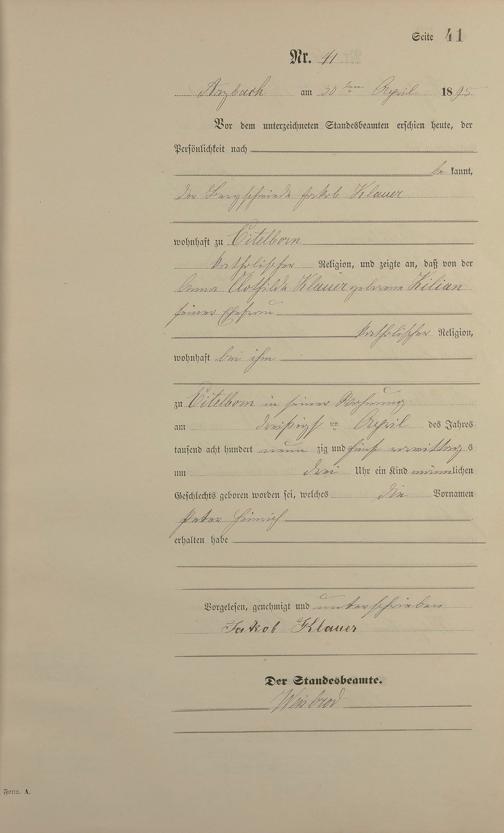 Seite 41
Nr. 41
Arzbach am 30ten April 1895
Vor dem unterzeichneten Standesbeamten erschien heute, der
Persönlichkeit nach
be kannt,
der Bergschmied Jakob Klauer
wohnhaft zu Eitelborn
katholischer Religion, und zeigte an, daß von der
Anna Clothilda Klauer geborene Kilian
seiner Ehefrau
katholischer Religion,
wohnhaft bei ihm
zu Eitelborn in seiner Wohnung
am dreißigsten April des Jahres
tausend acht hundert neun zig und fünf vormittag s
um drei Uhr ein Kind männlichen
Geschlechts geboren worden sei, welches die Vornamen
Peter Heinrich
erhalten habe
Vorgelesen, genehmigt und unterschrieben
Jakob Klauer
Der Standesbeamte.
Weisbrod
Form. A.